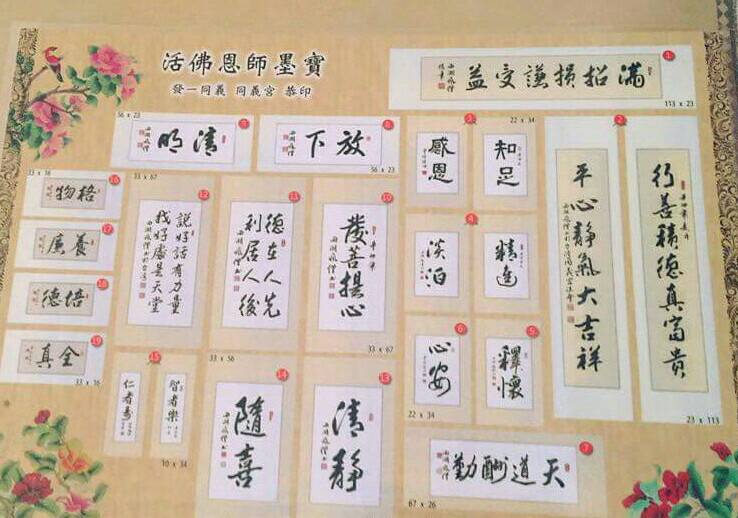 活佛恩師墨寶
發一同義 同義宮 恭印
1
滿招損謙受益
113 x 23
2
行善積德真富貴
平心靜氣大吉祥
23 x 113
3
22 x 34
知足
感恩
4
精進
淡泊
5
釋懷
6
心安
22 x 34
7
天道酬勤
67 x 26
8
放下
56 x 23
56 x 23
清明
西湖瘋僧
10
發菩提心
33 x 67
11
德在人先
利居人後
33 x 67
12
說好話有力量
找好處是天堂
13
清靜
14
隨喜
33 x 56
15
智者樂
仁者壽
10 x 34
16
格物
33 x 16
17
養廉
18
培德
19
全真
33 x 16